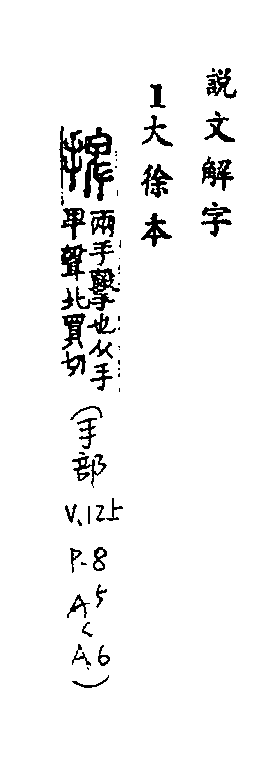 說文解字
I大徐本
捭兩手擊也从手
卑聲北買切
(手部
V.125
P.8
A5
<
A.6)